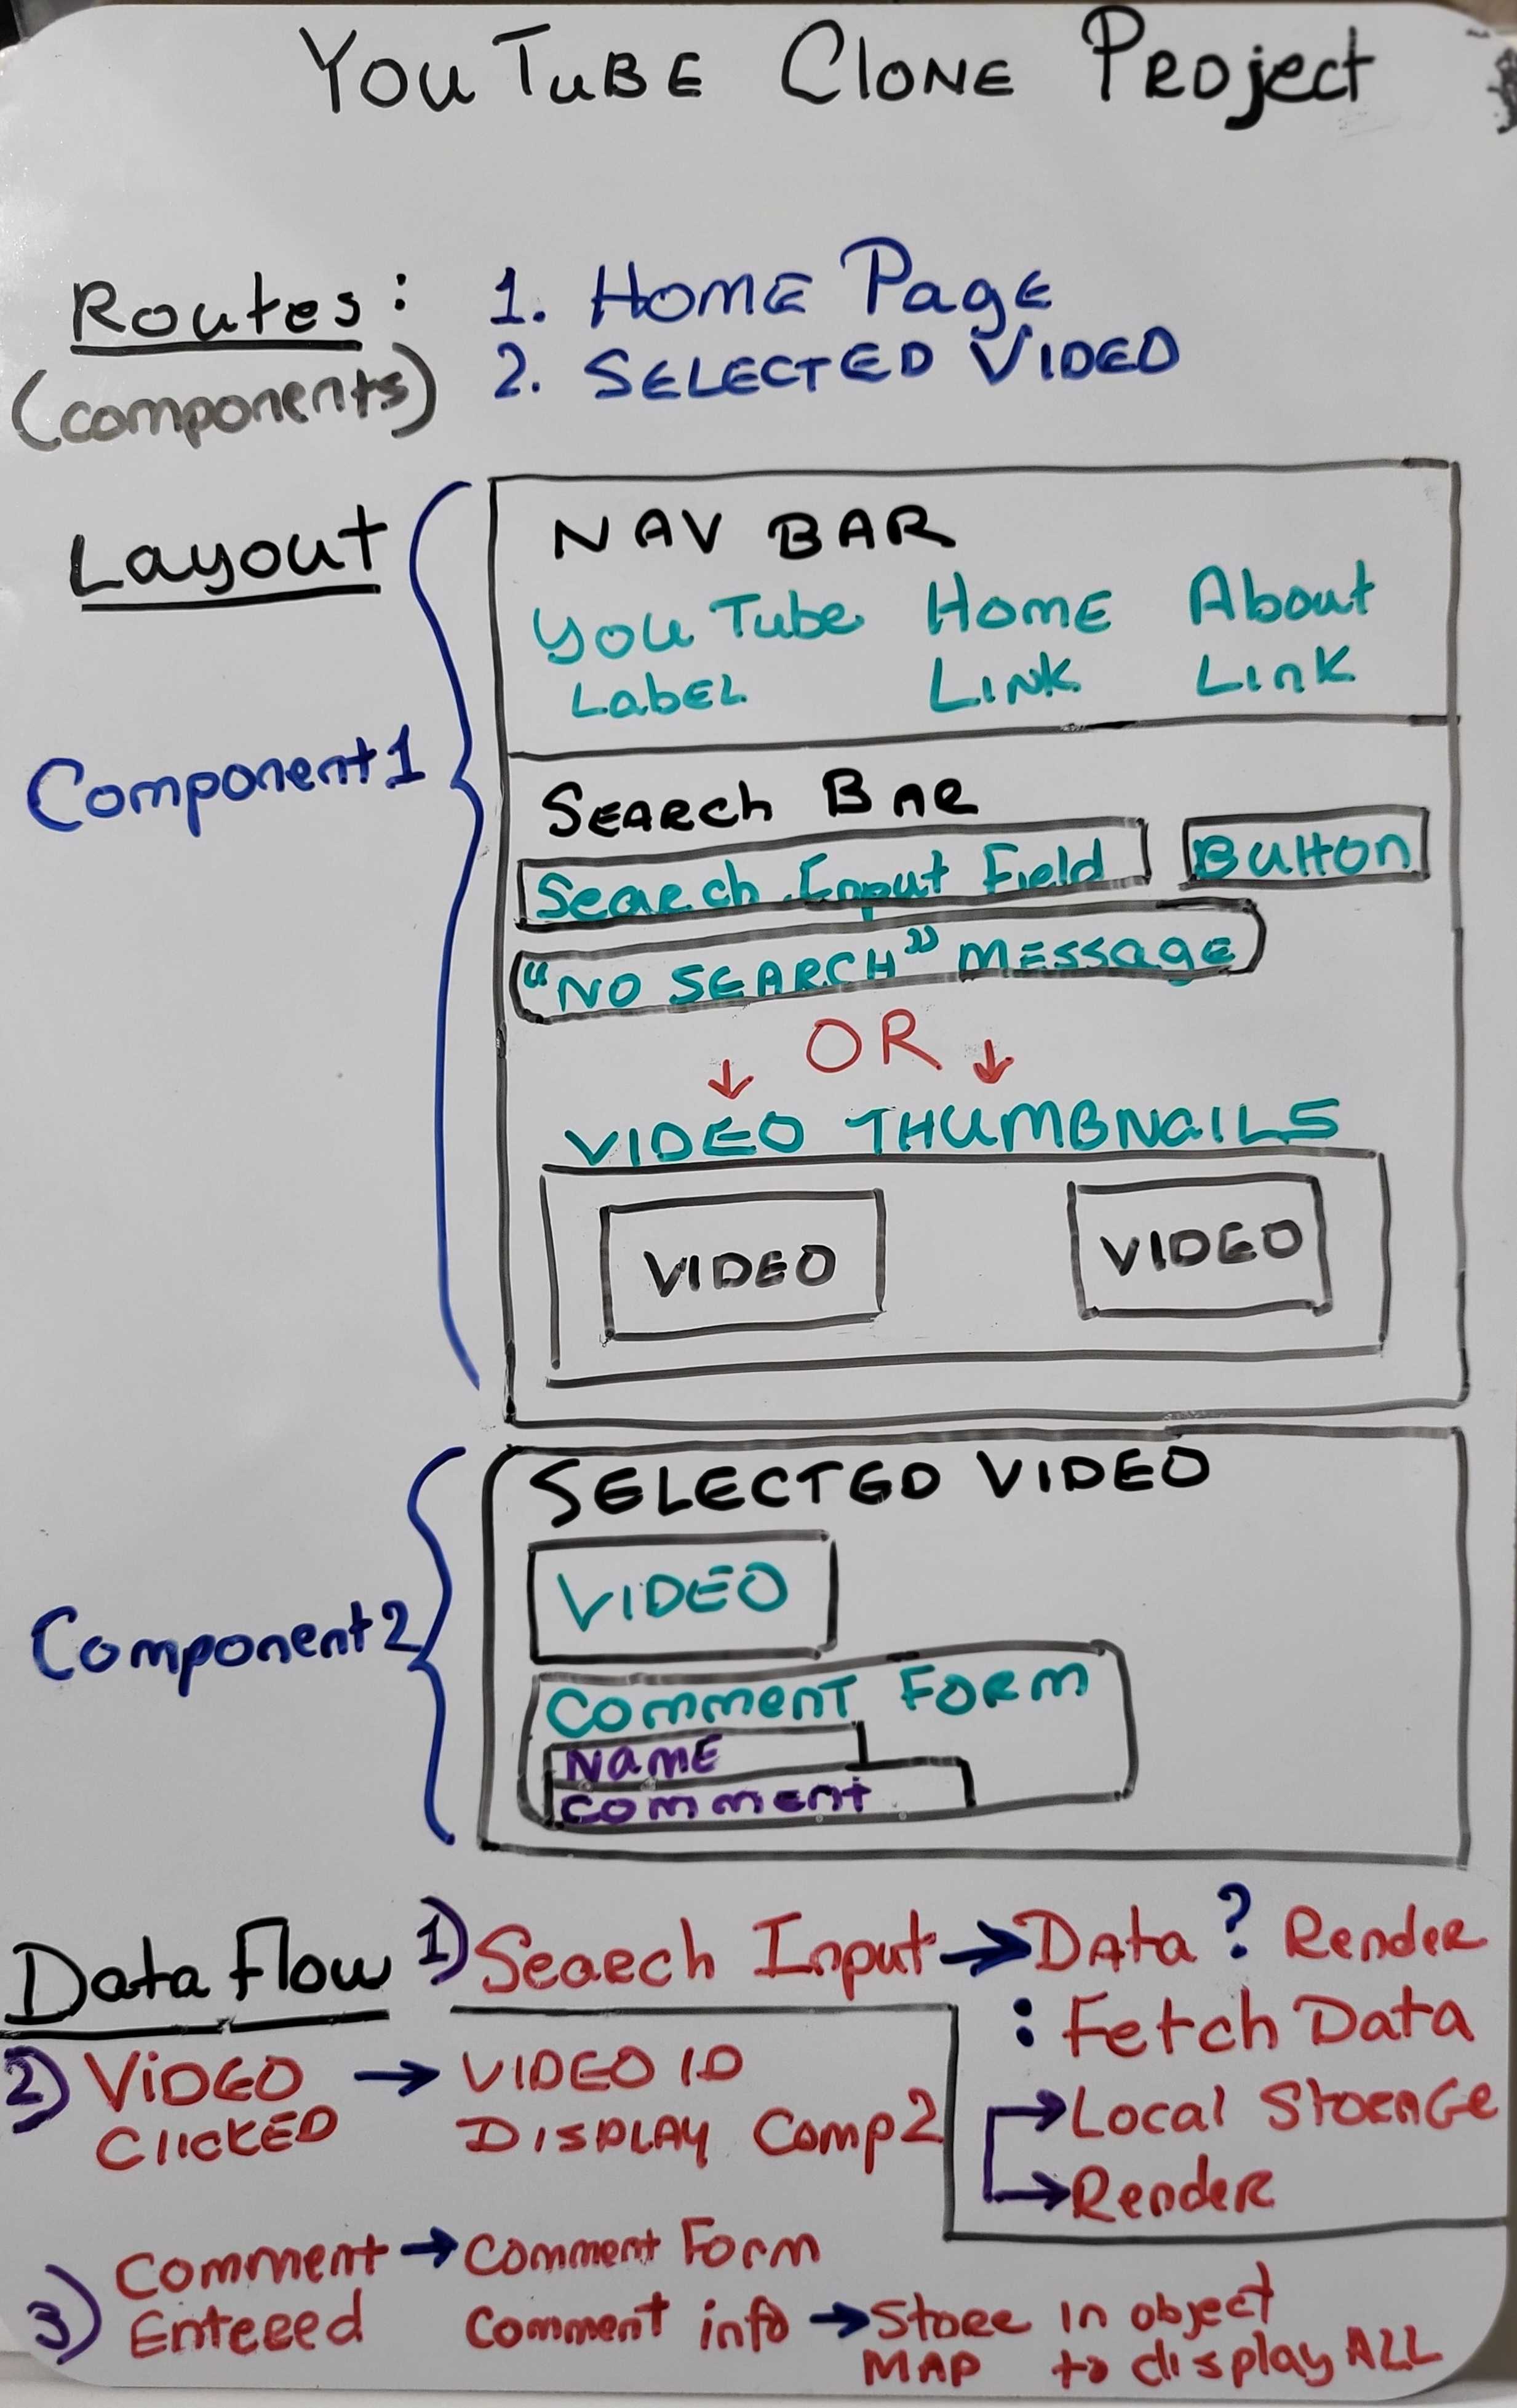 YouTube Clone Project
Routes: 1. Home Page
(components) 2. Selected Video
Layout
Component 1
NAV BAR
YouTube Home About
Label Link Link
Search Bar
Search Input Field Button
"NO SEARCH" Message
OR
VIDEO THUMBNAILS
VIDEO VIDEO
Component 2
SELECTED VIDEO
VIDEO
Comment Form
Name
Comment
Data Flow 1) Search Input → Data ? Render
: Fetch Data
→ Local Storage
→ Render
2) VIDEO → VIDEO ID
CLICKED DISPLAY Comp 2
3) Comment → Comment Form
Entered Comment info → Store in object
MAP to display ALL